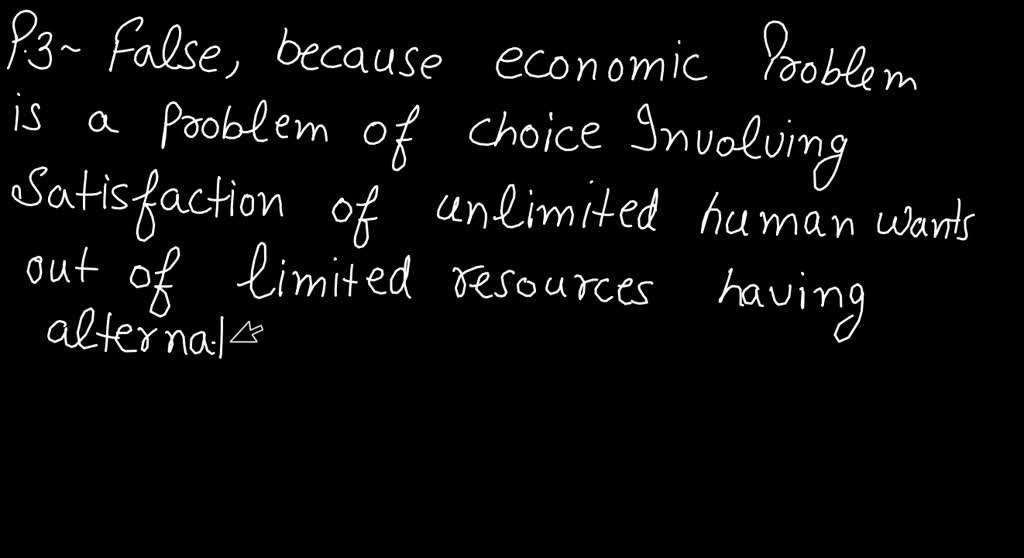 P.3~ False, because economic Problem
is a Problem of choice Involving
Satisfaction of unlimited human wants
out of limited resources having
alternat